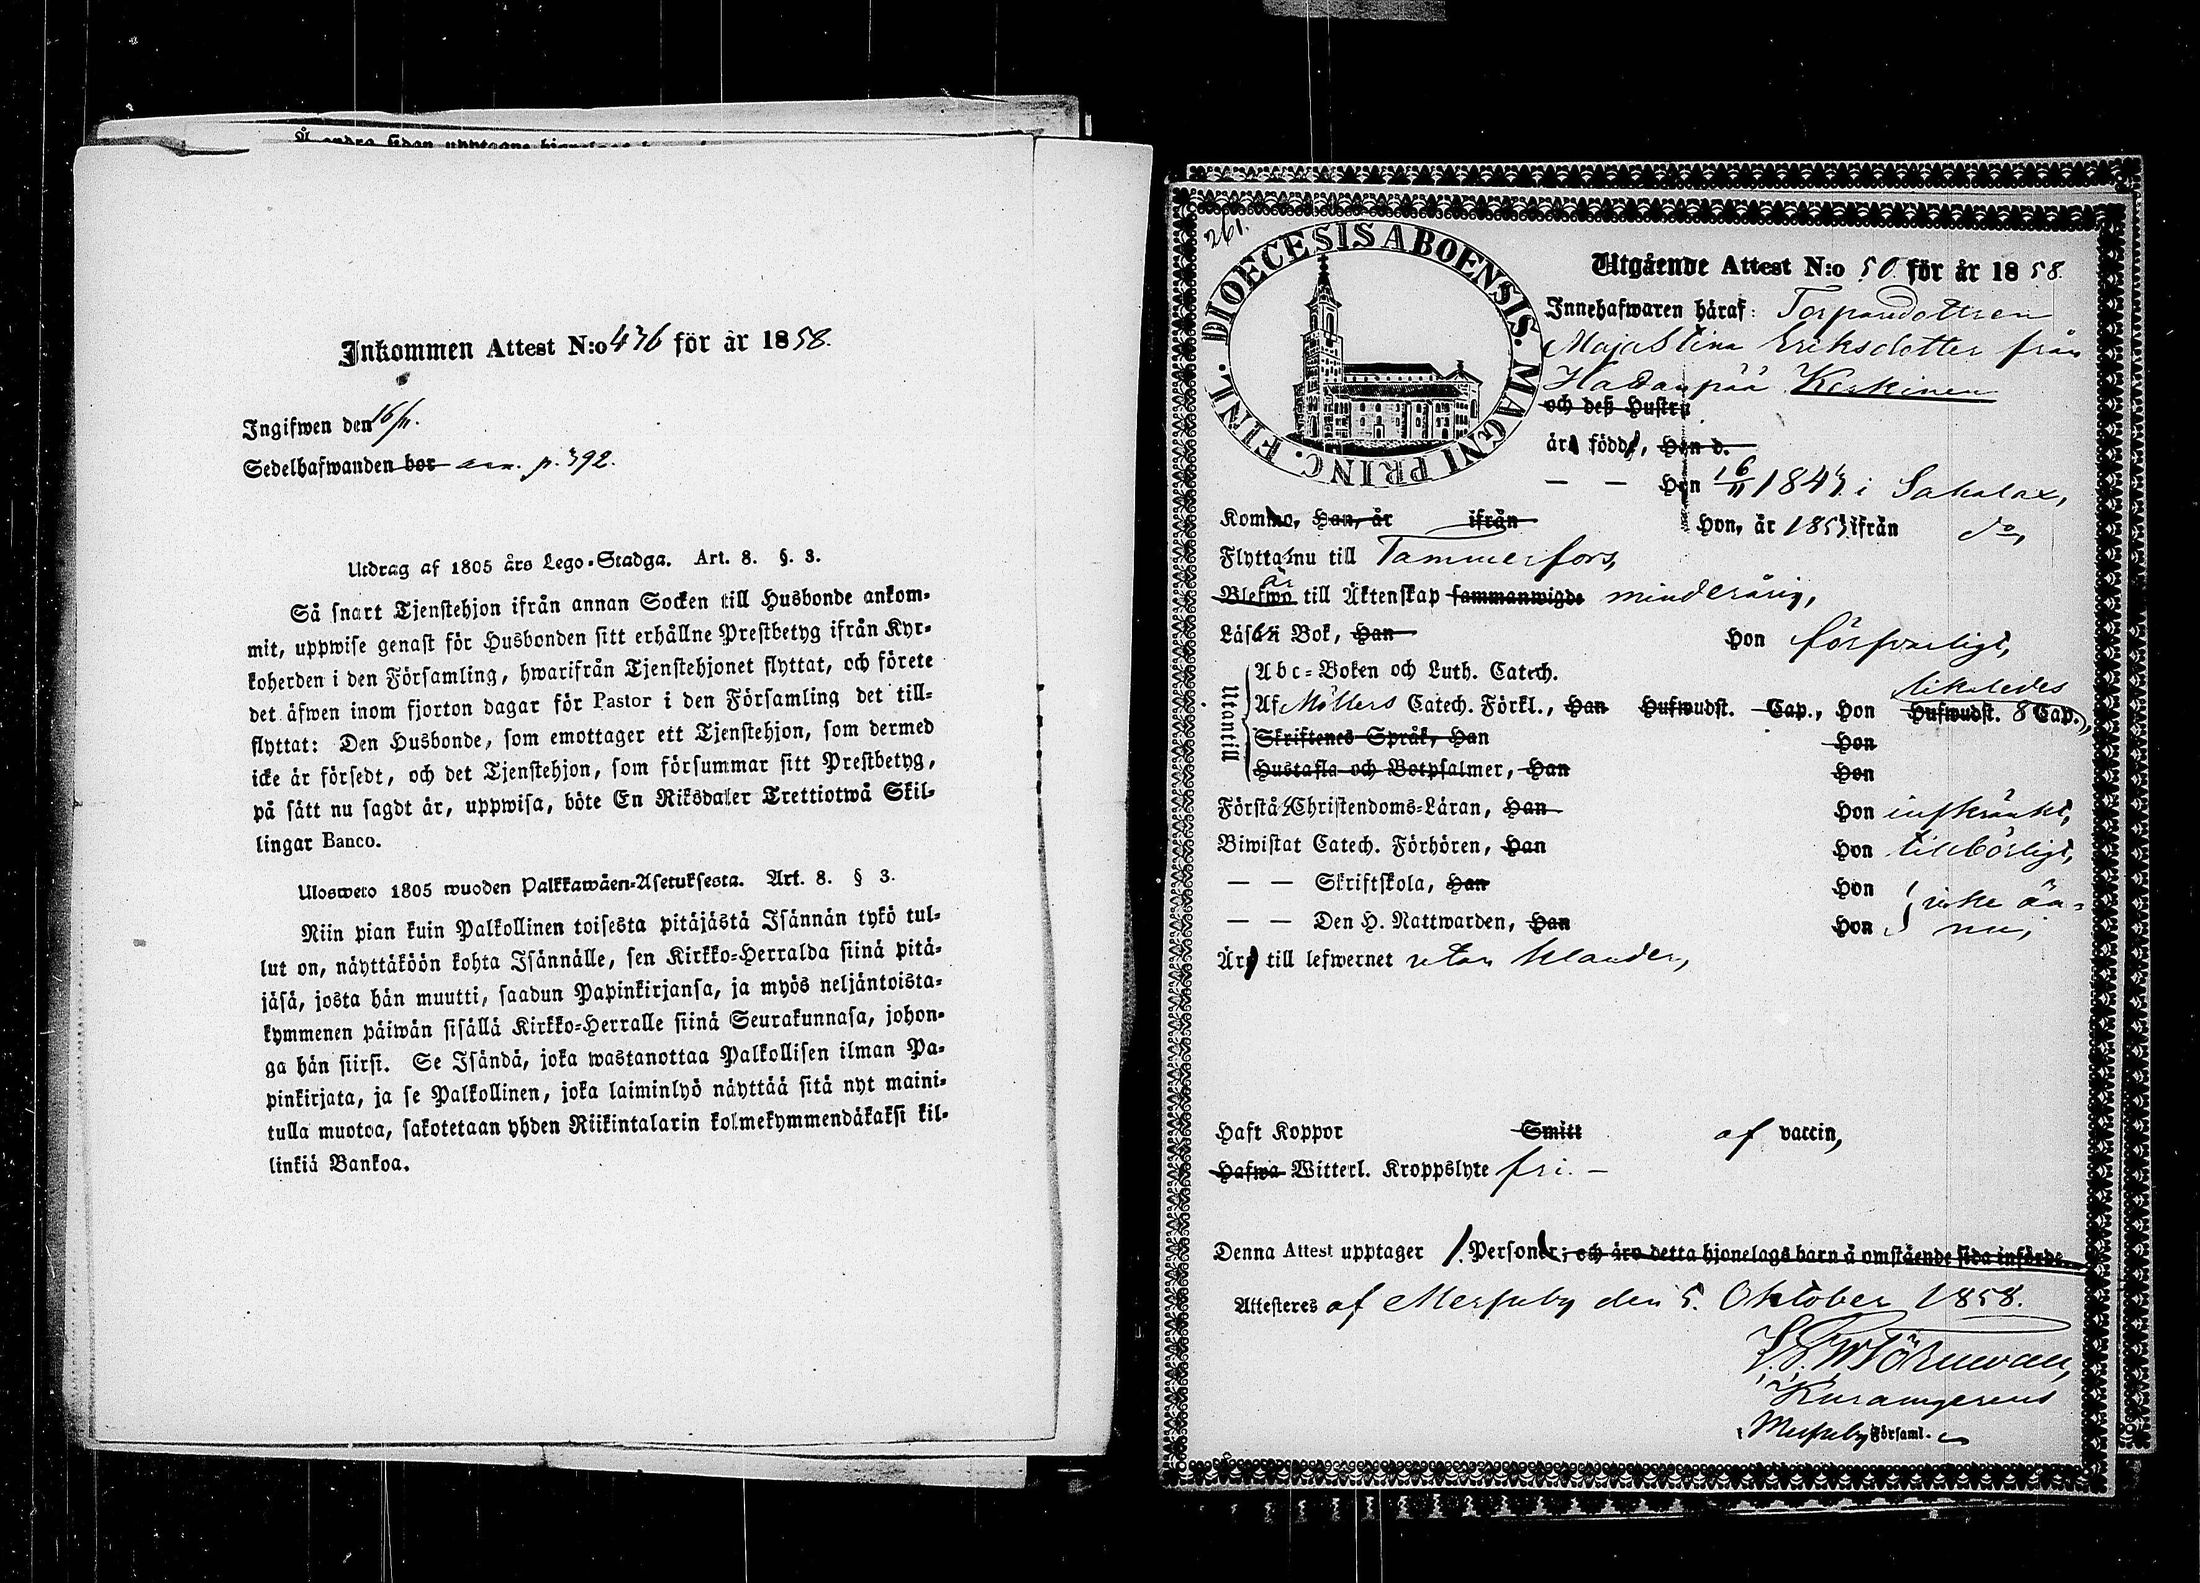 Inkommen Attest N:o 436 för år 1858.
Ingifwen den 16/11.
Sedelhafwanden bor ann. p. 392.
Utdrag af 1805 års Lego-Stadga. Art. 8. §. 3.
Så snart Tjenstehjon ifrån annan Socken till Husbonde ankom-
mit, uppwise genast för Husbonden sitt erhållne Prestbetyg ifrån Kyr-
koherden i den Församling, hwarifrån Tjenstehjonet flyttat, och förete
det äfwen inom fjorton dagar för Pastor i den Församling det till-
flyttat: Den Husbonde, som emottager ett Tjenstehjon, som dermed
icke är försedt, och det Tjenstehjon, som försummar sitt Prestbetyg,
på sätt nu sagdt är, uppwisa, böte En Riksdaler Trettiotwå Skil-
lingar Banco.
Ulosweto 1805 wuoden Palkkawäen-Asetuksesta. Art. 8. § 3.
Niin pian kuin Palkollinen toisesta pitäjästä Isännän tykö tul-
lut on, näyttäköön kohta Isännälle, sen Kirkko-Herralda siinä pitä-
jäsä, josta hän muutti, saadun Papinkirjansa, ja myös neljäntoista-
kymmenen päiwän sisällä Kirkko-Herralle siinä Seurakunnasa, johon-
ga hän siirsi. Se Isändä, joka wastanottaa Palkollisen ilman Pa-
pinkirjata, ja se Palkollinen, joka laiminlyö näyttää sitä nyt maini-
tulla muotoa, sakotetaan yhden Riikintalarin kolmekymmendäkaksi kil-
linkiä Bankoa.
261.
DIOECESIS ABOENSIS. MAGNI PRINC. FINL.
Utgående Attest N:o 50 för år 1858.
Innehafwaren häraf: Torpardottren
Maja Stina Eriksdotter från
Hadanpää Keskinen
och deß Hustru
är född, Han d.
— — Hon 16/11 1843 i Sahalax,
Komme, Han, år ifrån Hon, år 1853 ifrån do,
Flyttar nu till Tammerfors,
är
Blefwo till Äktenskap sammanwigde minderårig,
Läser i Bok, Han Hon förswarligt,
Utantill
Abc-Boken och Luth. Catech.
likaledes
Af Möllers Catech. Förkl., Han Hufwudst. Cap., Hon Hufwudst. 8 Cap.,
Skriftenes Språk, Han Hon
Hustafla och Botpsalmer, Han Hon
Förstår Christendoms-Läran, Han Hon inskränkt,
Biwistat Catech. Förhören, Han Hon tillbörligt,
— — Skriftskola, Han Hon icke än-
— — Den H. Nattwarden, Han Hon nu,
Är till lefwernet utan klander,
Haft Koppor Smitt af vaccin,
Hafwa Witterl. Kroppslyte fri. —
Denna Attest upptager 1. Person; och äro detta hjonelags barn å omstående sida införde.
Attesteres af Messuby den 5. Oktober 1858.
Törnwall,
i Messuby Församl.